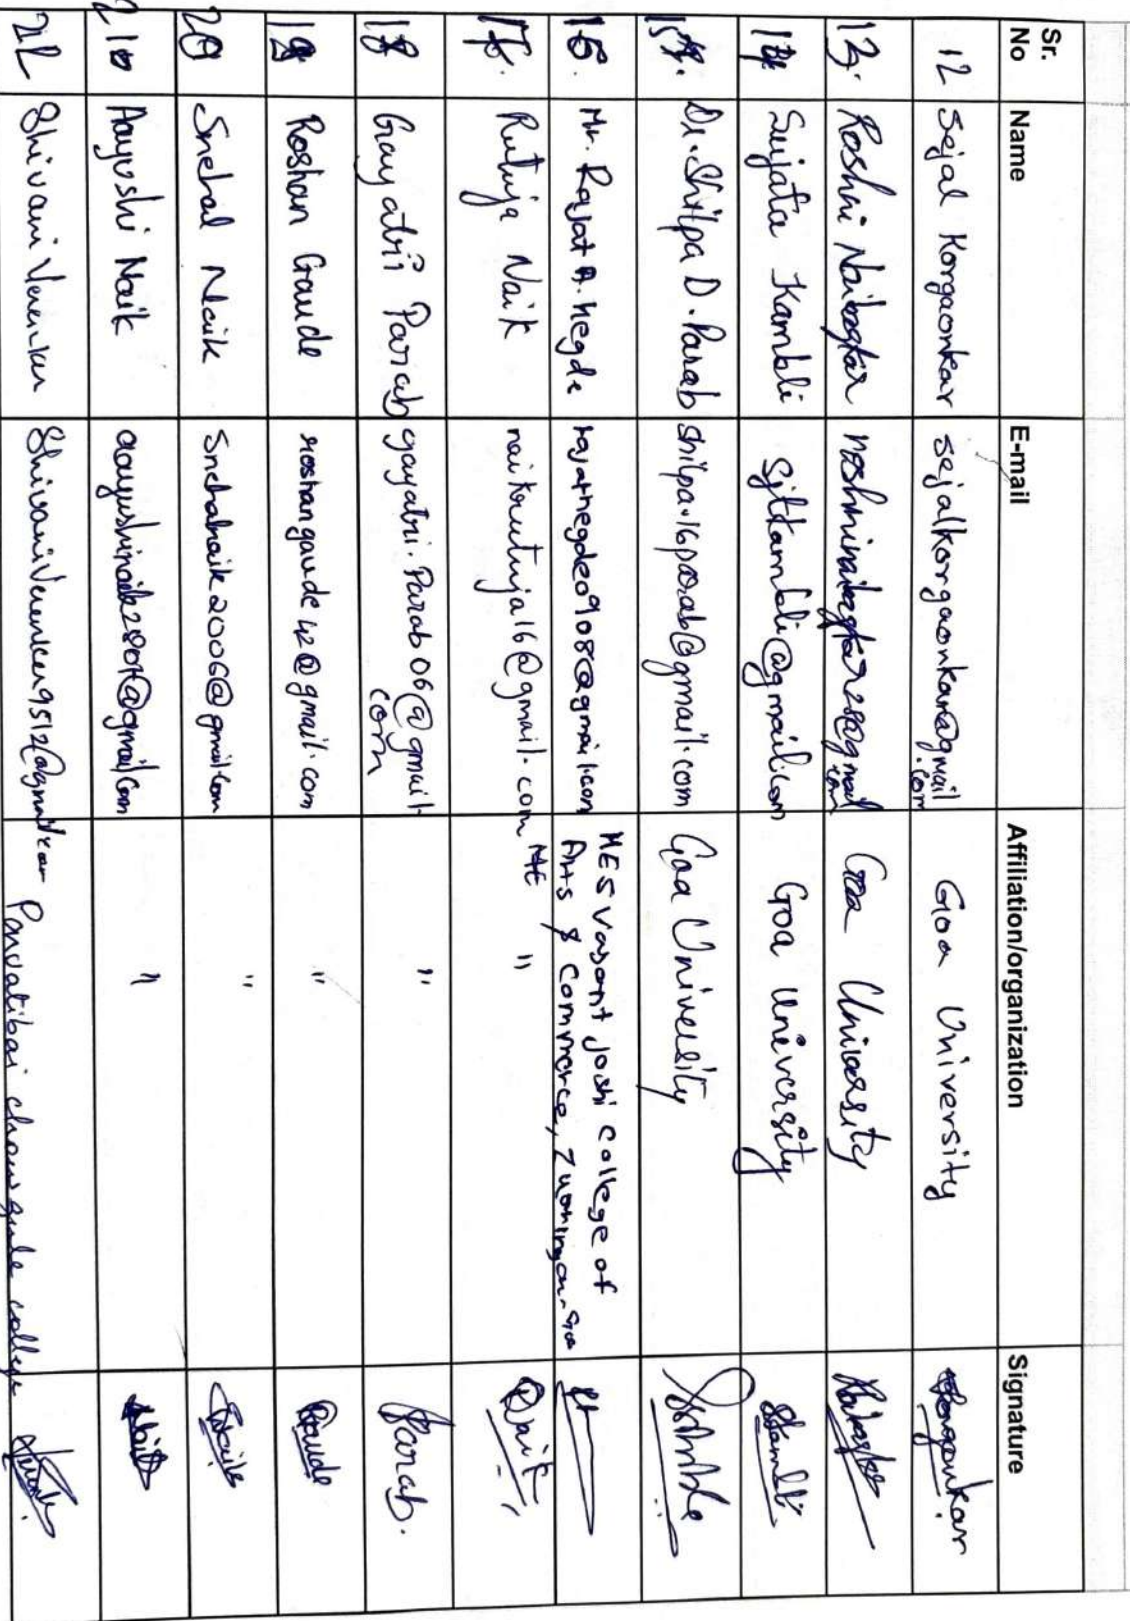 Sr. No Name E-mail Affiliation/organization Signature
12 Sejal Korgaonkar sejalkorgaonkar@gmail.com Goa University
13. Roshni Goa University
14 Sujata Kambli sjtkambli@gmail.com Goa University
15. Dr. Shilpa D. Parab shilpa.16parab@gmail.com Goa University
16. Mr. Rajat A. Hegde rajathegde0908@gmail.com MES Vasant Joshi College of
Arts & Commerce, Zuarinagar-Goa
17. Rutuja Naik naikrutuja16@gmail.com " Naik
18 Gayatri Parab gayatri.Parab06@gmail.com " Parab.
19 Roshan Gaude roshangaude42@gmail.com " Gaude
20 Snehal Naik Snehalnaik2006@gmail.com " Naik
21 Aayushi Naik "
22 Shivani Verenker ShivaniVerenker9512@gmail.com Parvatibai chowgule college